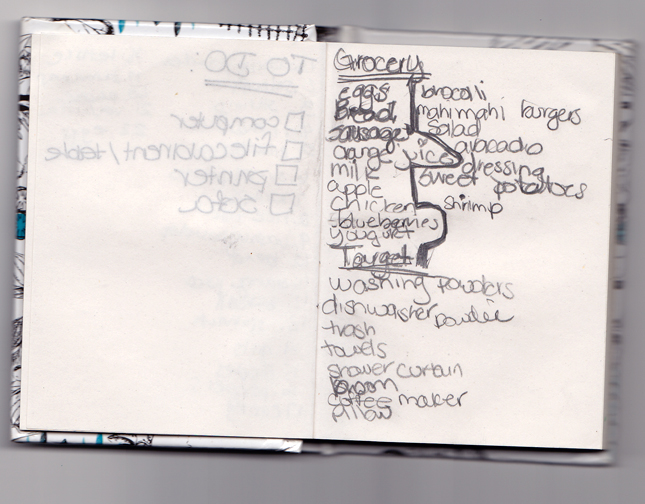 TO DO
computer
filecabinent/table
printer
sofa
Grocery
eggs
bread
sausage
orange juice
milk
apple
chicken
blueberries
yougurt
brocolli
mahimahi burgers
salad
avacadio
dressing
sweet potatoes
shrimp
Target
washing powders
dishwasher powder
trash
towels
shower curtain
broom
coffee maker
pillow